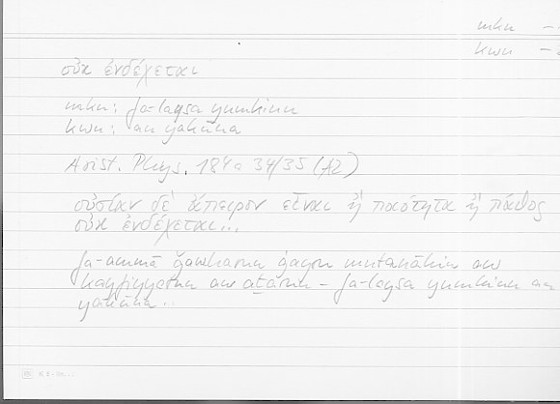 mkn –
kwn –
οὐκ ἐνδέχεται
mkn: fa-laysa yumkinu
kwn: an yakūna
Arist. Phys. 184a 34/35 (A2)
οὐσίαν δὲ ἄπειρον εἶναι ἢ ποιότητα ἢ πάθος
οὐκ ἐνδέχεται...
fa-ammā ǧawharun ġayru mutanāhin aw
kayfiyyatun aw aṯarun – fa-laysa yumkinu an
yakūna..